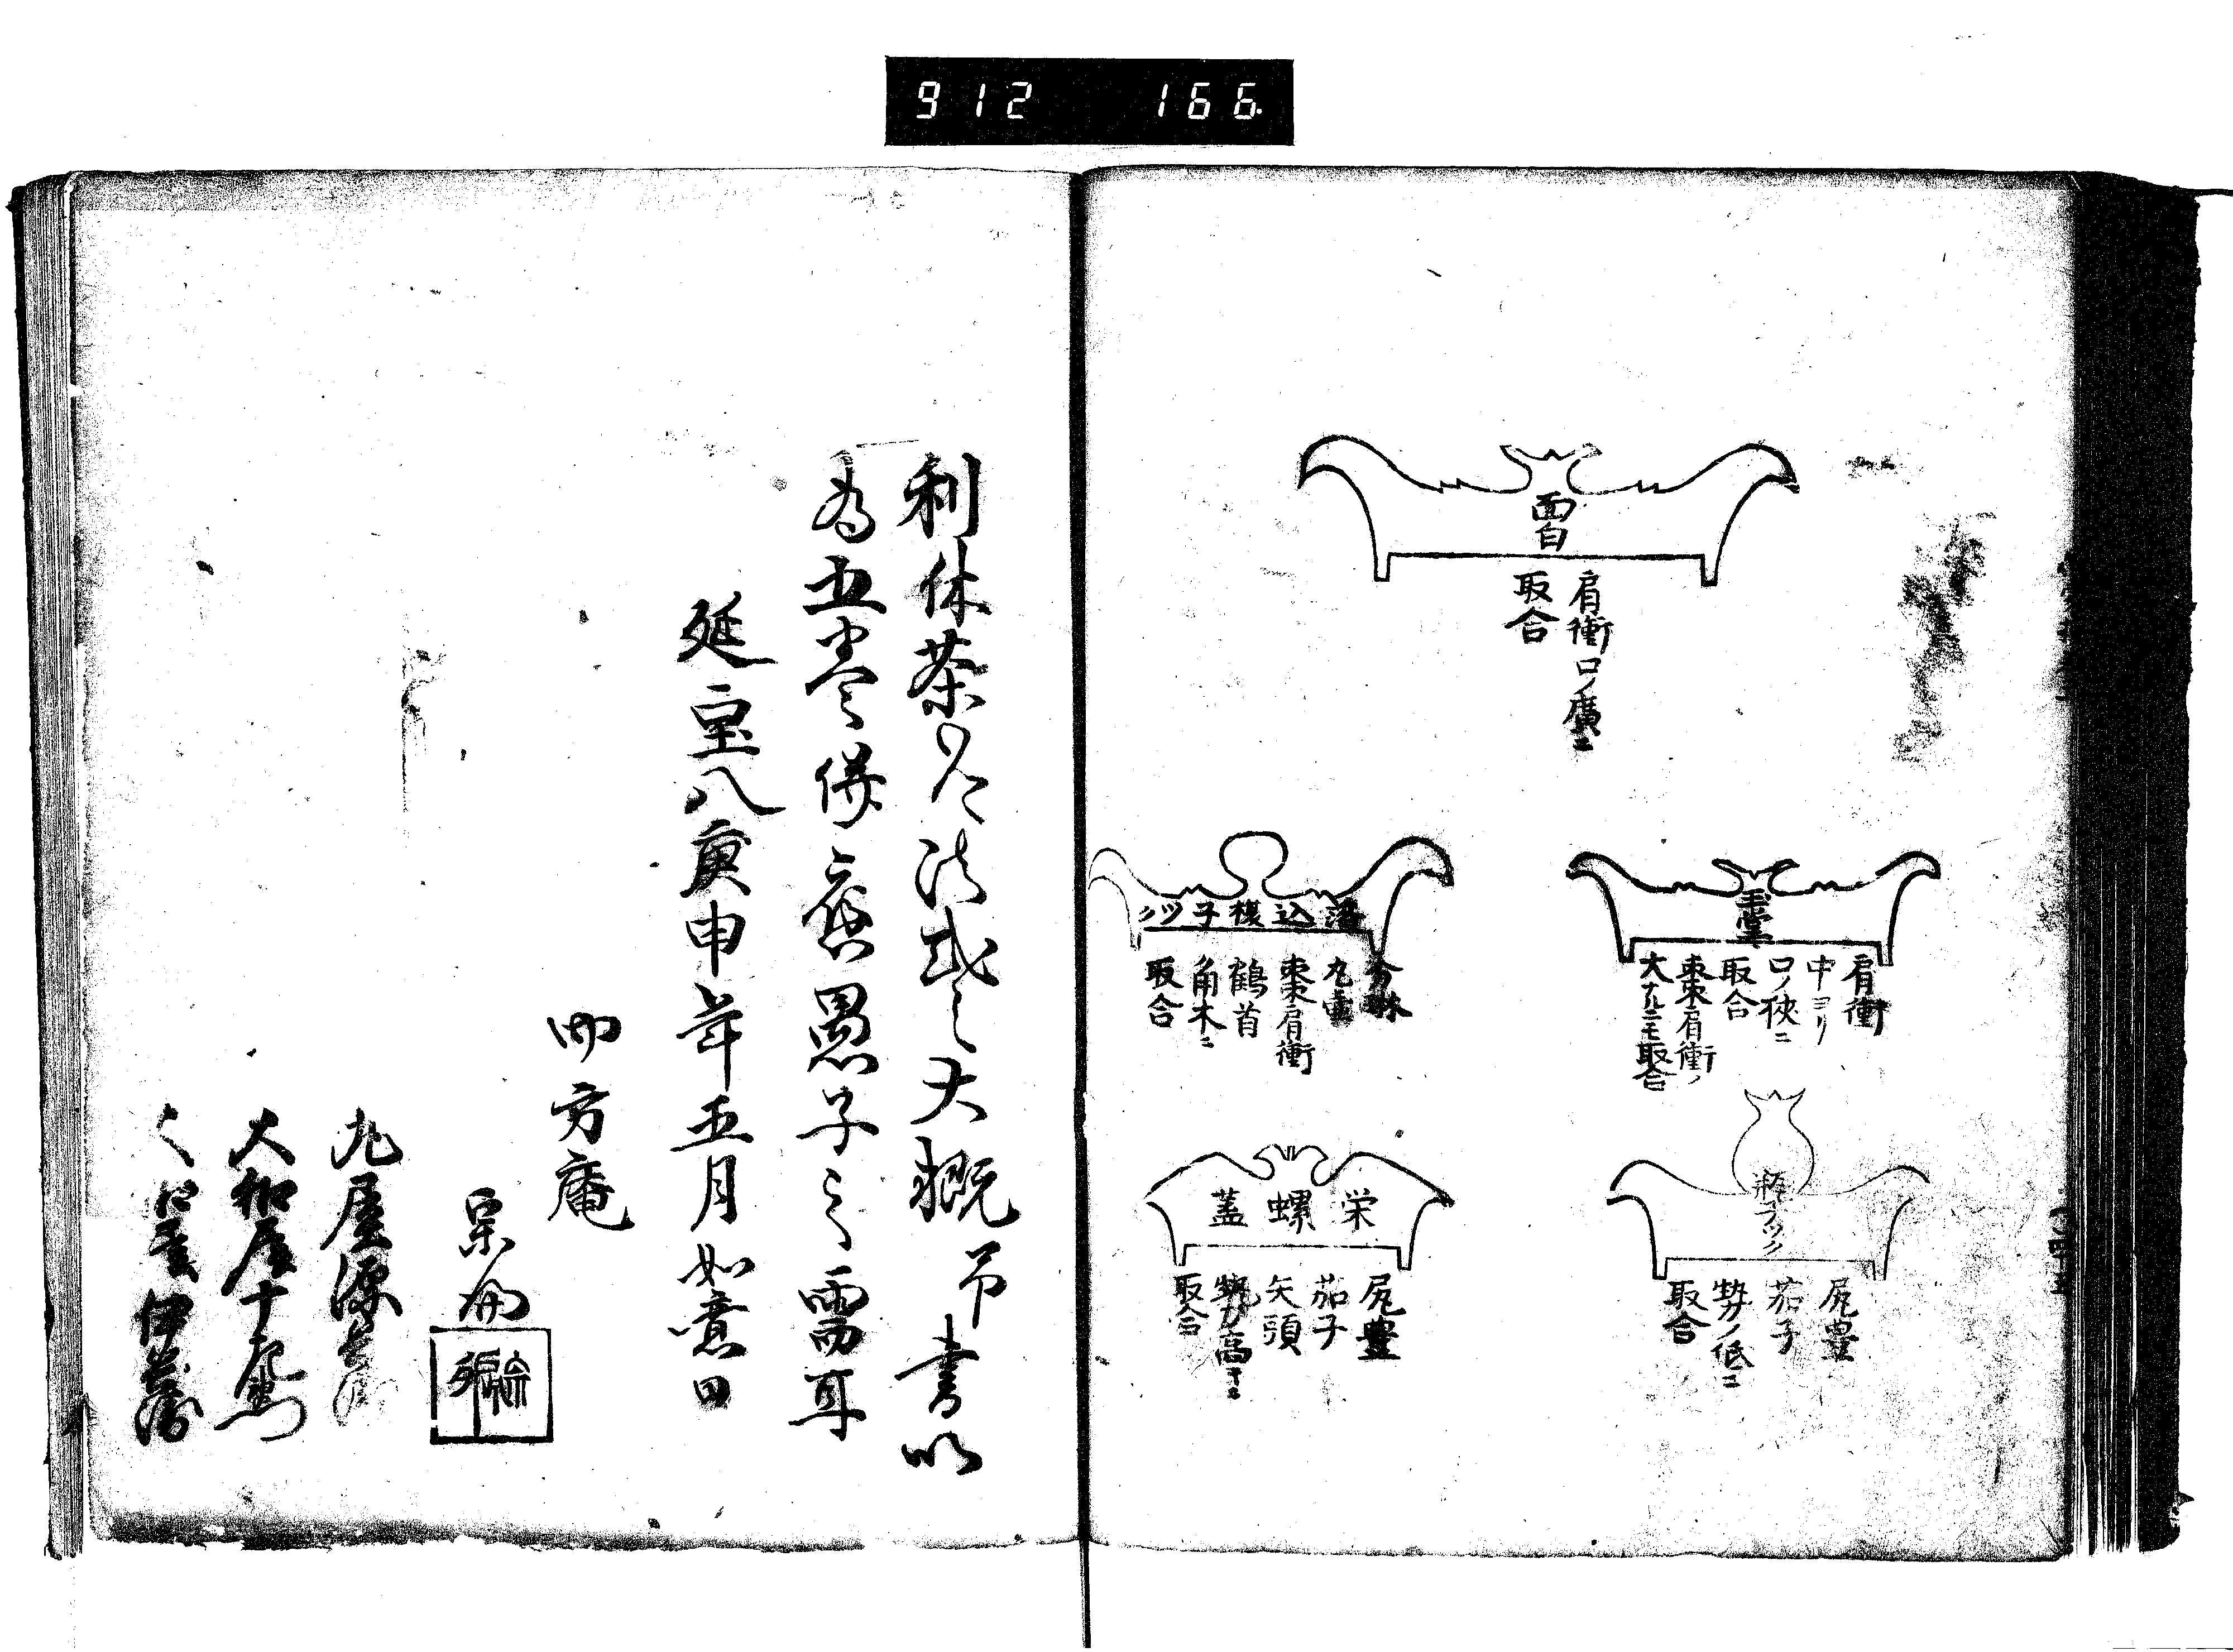 912 166
面白
肩衝口ノ廣ニ
取合
肩衝
中ヨリ
口ノ狹ニ
取合
棗肩衝ノ
大ナルニモ取合
落込複子ツク
丸壷
棗肩衝
鶴首
角木ニ
取合
瓶子ツク
尻豊
茄子
勢ノ低ニ
取合
栄螺蓋
尻豊
茄子
矢頭
勢高キニ
取合
利休茶之法式之大概書以
為五巻併應愚子之需耳
延宝八庚申年五月如意日
四方庵
宗徧
丸屋源兵衛
大和屋十左衛門
屋伊兵衛